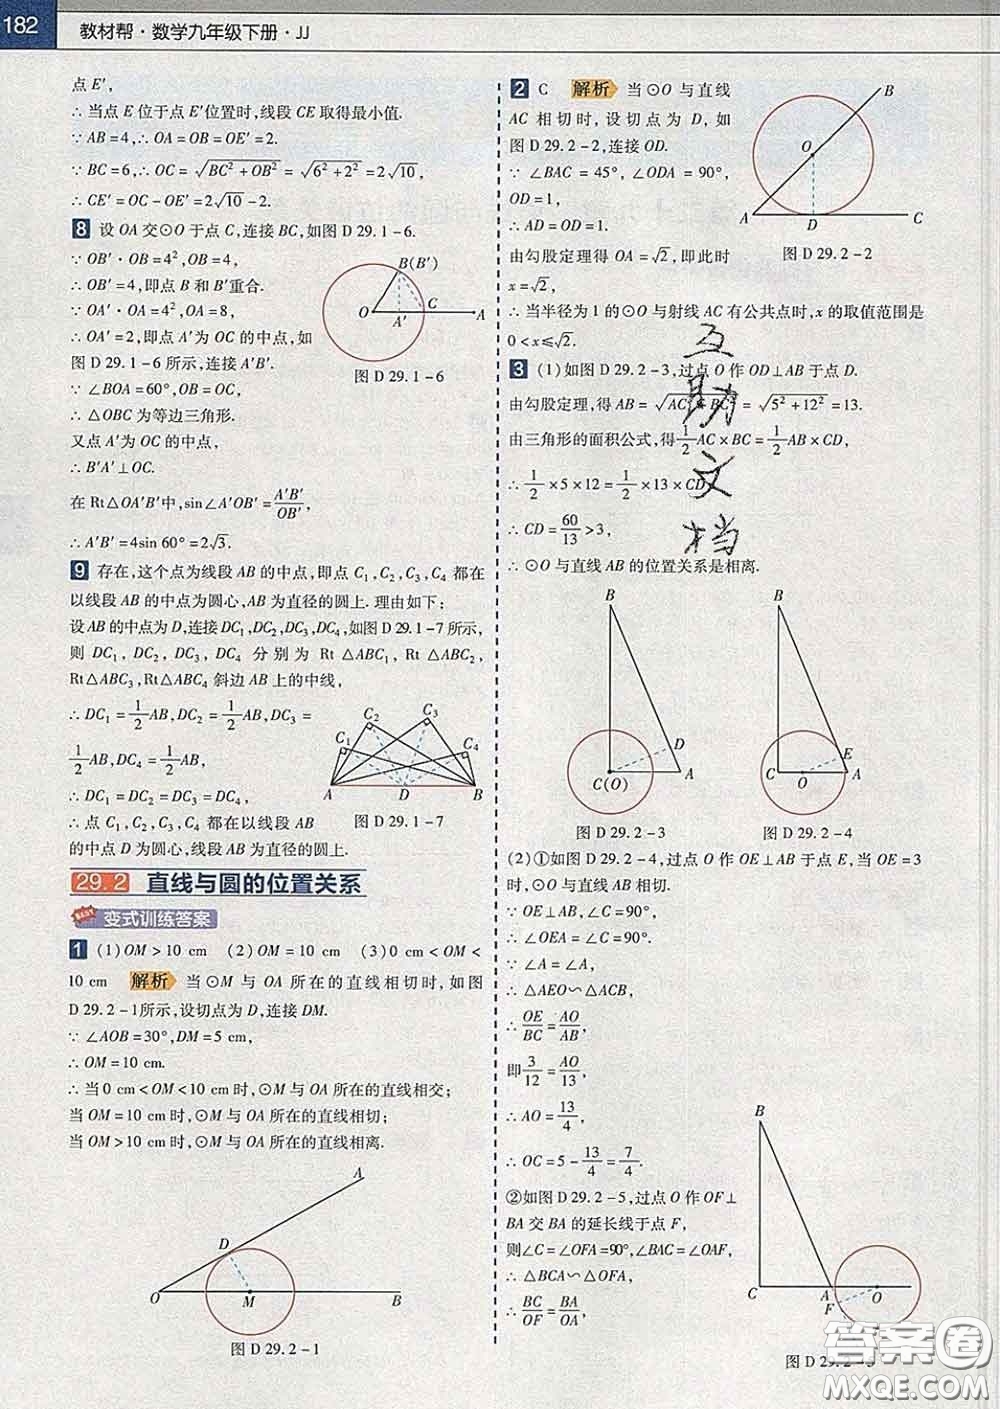 182 教材帮·数学九年级下册·JJ
点 E′,
∴ 当点 E 位于点 E′位置时,线段 CE 取得最小值.
∵ AB=4,∴ OA=OB=OE′=2.
∵ BC=6,∴ OC=√(BC²+OB²)=√(6²+2²)=2√10,
∴ CE′=OC-OE′=2√10-2.
8 设 OA 交⊙O 于点 C,连接 BC,如图 D 29.1-6.
∵ OB′·OB=4²,OB=4,
∴ OB′=4,即点 B 和 B′重合.
∵ OA′·OA=4²,OA=8,
∴ OA′=2,即点 A′为 OC 的中点,如
图 D 29.1-6 所示,连接 A′B′.
∵ ∠BOA=60°,OB=OC,
∴ △OBC 为等边三角形.
又点 A′为 OC 的中点,
∴ B′A′⊥OC.
在 Rt△OA′B′中,sin∠A′OB′=A′B′/OB′,
∴ A′B′=4sin 60°=2√3.
B(B′)
O A′ C A
图 D 29.1-6
9 存在,这个点为线段 AB 的中点,即点 C₁,C₂,C₃,C₄ 都在
以线段 AB 的中点为圆心,AB 为直径的圆上. 理由如下:
设 AB 的中点为 D,连接 DC₁,DC₂,DC₃,DC₄,如图 D 29.1-7 所示,
则 DC₁, DC₂, DC₃, DC₄ 分别为 Rt △ABC₁, Rt △ABC₂,
Rt△ABC₃,Rt△ABC₄ 斜边 AB 上的中线,
∴ DC₁=1/2AB,DC₂=1/2AB,DC₃=
1/2AB,DC₄=1/2AB,
∴ DC₁=DC₂=DC₃=DC₄,
∴ 点 C₁,C₂,C₃,C₄ 都在以线段 AB
的中点 D 为圆心,线段 AB 为直径的圆上.
C₁ C₂ C₃ C₄
A D B
图 D 29.1-7
29.2 直线与圆的位置关系
BEST 变式训练答案
1 (1)OM>10 cm (2)OM=10 cm (3)0 cm<OM<
10 cm 解析 当⊙M 与 OA 所在的直线相切时,如图
D 29.2-1所示,设切点为 D,连接 DM.
∵ ∠AOB=30°,DM=5 cm,
∴ OM=10 cm.
∴ 当 0 cm<OM<10 cm 时,⊙M 与 OA 所在的直线相交;
当 OM=10 cm 时,⊙M 与 OA 所在的直线相切;
当 OM>10 cm 时,⊙M 与 OA 所在的直线相离.
A
D
O M B
图 D 29.2-1
2 C 解析 当⊙O 与直线
AC 相切时,设切点为 D,如
图 D 29.2-2,连接 OD.
∵ ∠BAC=45°,∠ODA=90°,
OD=1,
∴ AD=OD=1,
由勾股定理得 OA=√2,即此时
x=√2,
∴ 当半径为 1 的⊙O 与射线 AC 有公共点时,x 的取值范围是
0<x≤√2.
B
O
A D C
图 D 29.2-2
3 (1)如图 D 29.2-3,过点 O 作 OD⊥AB 于点 D.
由勾股定理,得 AB=√(AC²+BC²)=√(5²+12²)=13.
由三角形的面积公式,得1/2AC×BC=1/2AB×CD,
∴ 1/2×5×12=1/2×13×CD,
∴ CD=60/13>3,
∴ ⊙O 与直线 AB 的位置关系是相离.
互
助
文
档
B
D
C(O) A
图 D 29.2-3
B
E
C O A
图 D 29.2-4
(2)①如图 D 29.2-4,过点 O 作 OE⊥AB 于点 E,当 OE=3
时,⊙O 与直线 AB 相切.
∵ OE⊥AB,∠C=90°,
∴ ∠OEA=∠C=90°.
∵ ∠A=∠A,
∴ △AEO∽△ACB,
∴ OE/BC=AO/AB,
即3/12=AO/13,
∴ AO=13/4,
∴ OC=5-13/4=7/4.
②如图 D 29.2-5,过点 O 作 OF⊥
BA 交 BA 的延长线于点 F,
则∠C=∠OFA=90°,∠BAC=∠OAF,
∴ △BCA∽△OFA,
∴ BC/OF=BA/OA,
B
C A O
F
图 D 29.2-5
答案圈
MXQE.COM